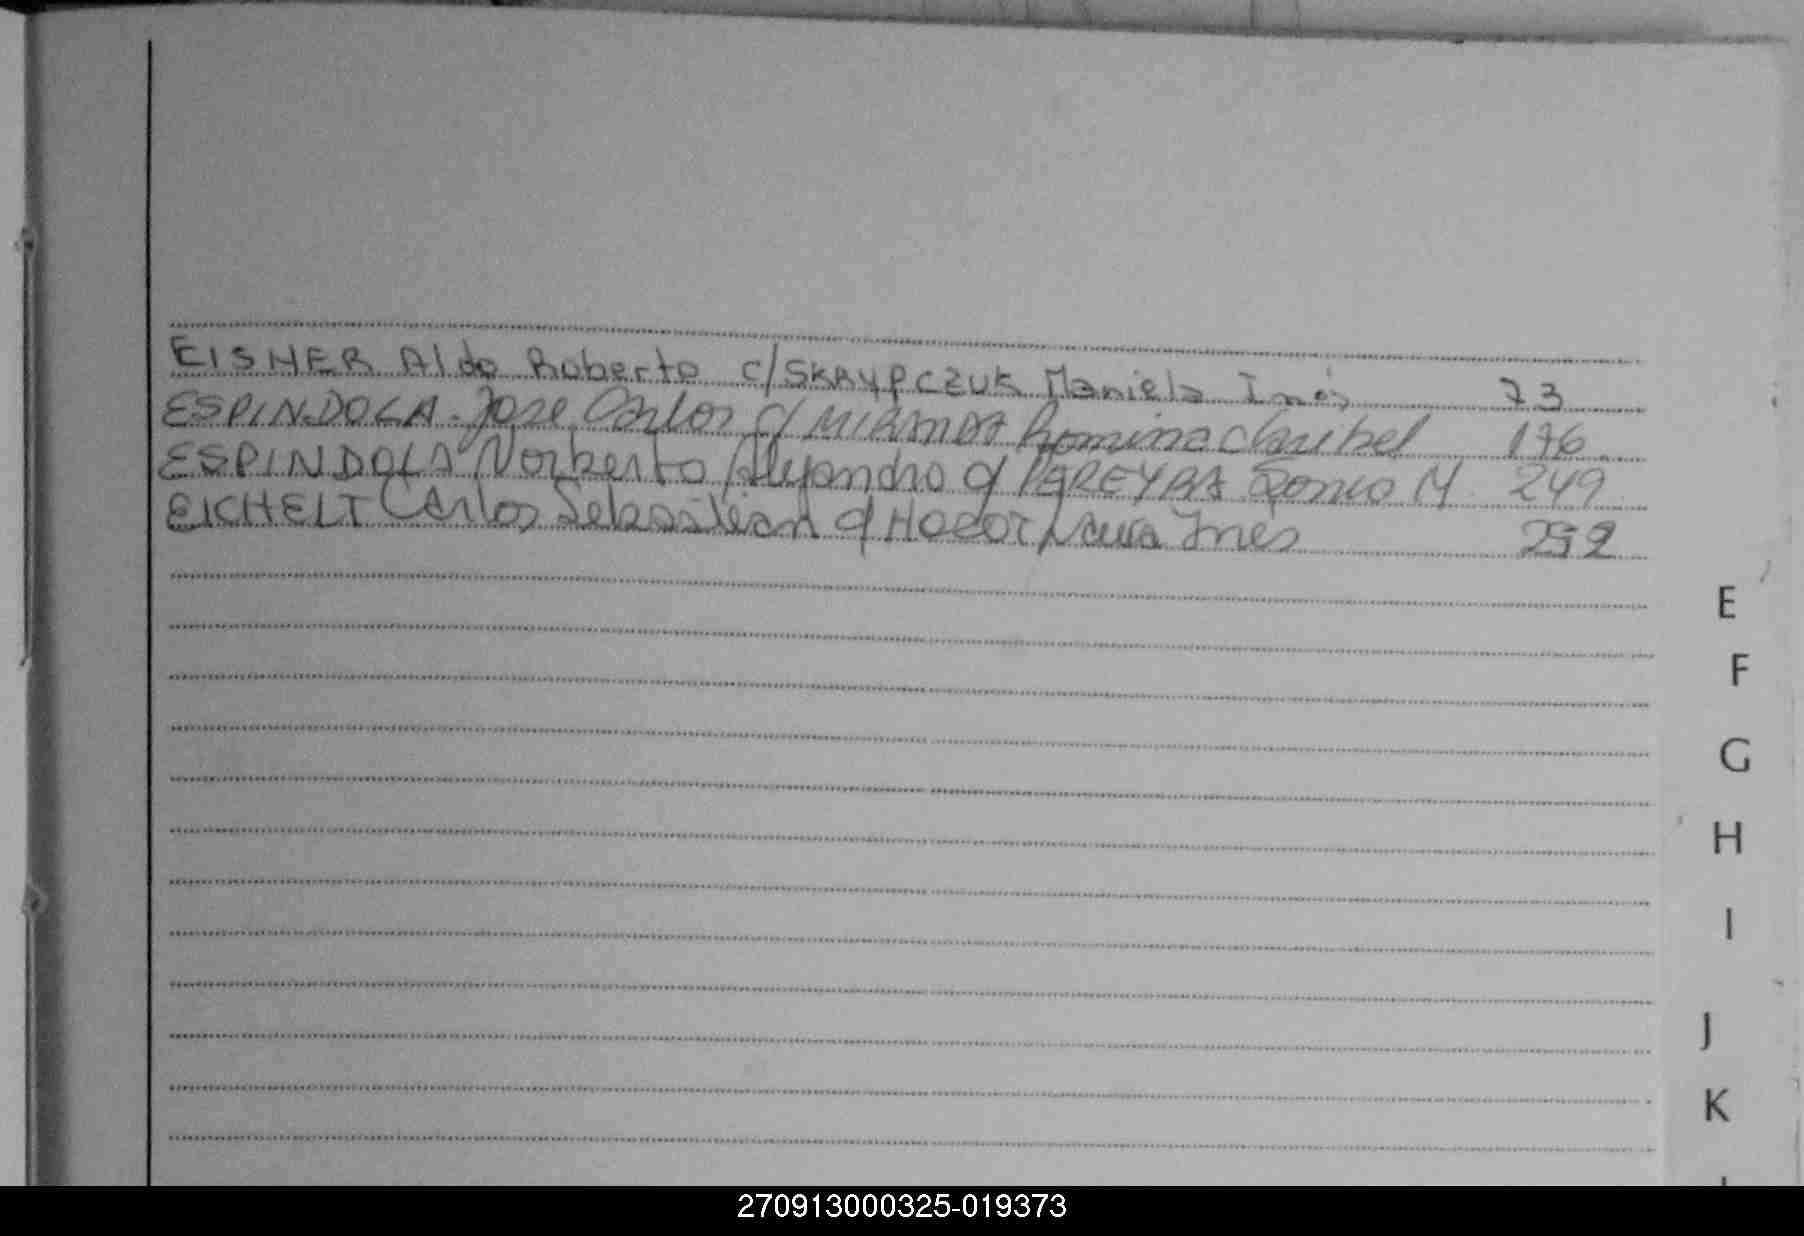 EISNER Aldo Roberto c/ SKRYPCZUK Mariela Inés 73
ESPINDOLA Jose Carlos c/ MIRANDA Romina Claribel 176
ESPINDOLA Norberto Alejandro c/ PEREYRA Sonia M. 249
EICHELT Carlos Sebastian c/ Laura Ines 292
E
F
G
H
I
J
K
270913000325-019373